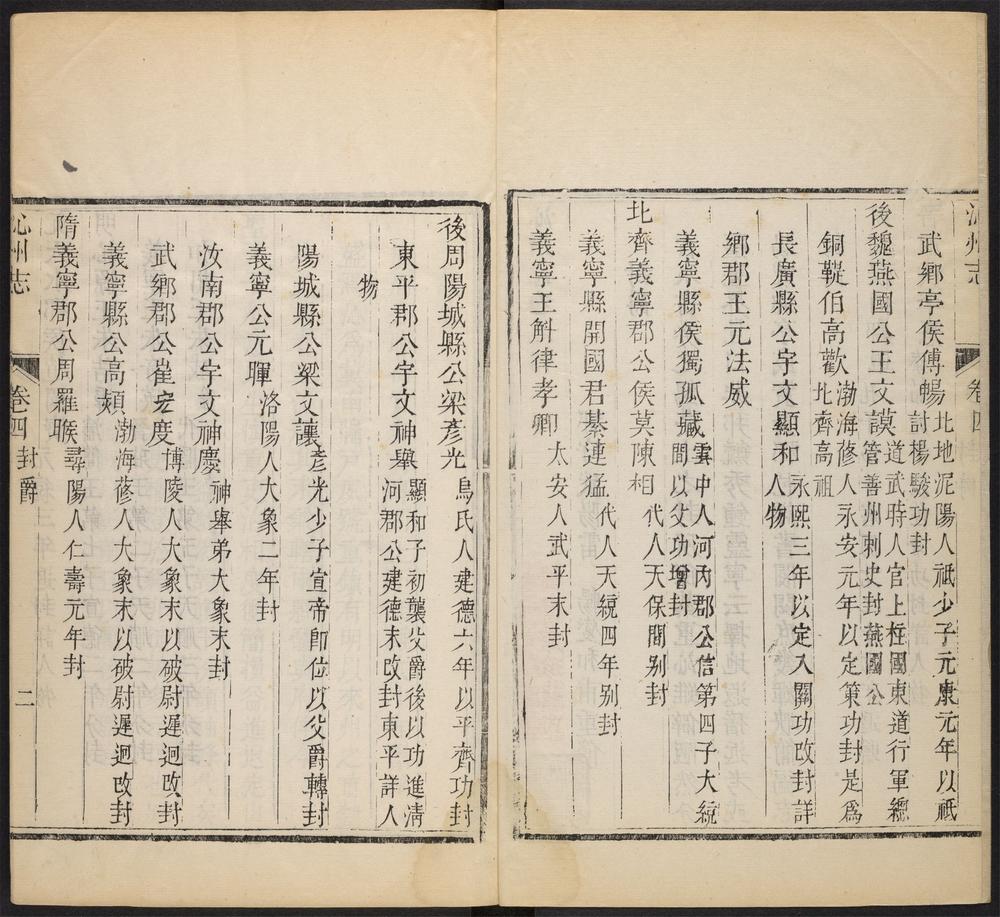 沁州志
卷四
武鄉亭侯傅暢北地泥陽人祗少子元康元年以祗
討楊駿功封
後魏燕國公王文謨道武時人官上柱國東道行軍總
管善州刺史封燕國公
銅鞮伯高歡渤海蓚人永安元年以定策功封是爲
北齊高祖
長廣縣公宇文顯和永熙三年以定入關功改封詳
人物
鄉郡王元法威
義寧縣侯獨孤藏雲中人河內郡公信第四子大統
間以父功增封
北齊義寧郡公侯莫陳相代人天保間别封
義寧縣開國君綦連猛代人天統四年别封
義寧王斛律孝卿太安人武平末封
後周陽城縣公梁彥光烏氏人建德六年以平齊功封
東平郡公宇文神舉顯和子初襲父爵後以功進淸
河郡公建德末改封東平詳人
物
陽城縣公梁文讓彥光少子宣帝卽位以父爵轉封
義寧公元暉洛陽人大象二年封
汝南郡公宇文神慶神舉弟大象末封
武鄉郡公崔宏度博陵人大象末以破尉遲迥改封
義寧縣公高熲渤海蓚人大象末以破尉遲迥改封
隋義寧郡公周羅睺尋陽人仁壽元年封
沁州志
卷四
封爵
二